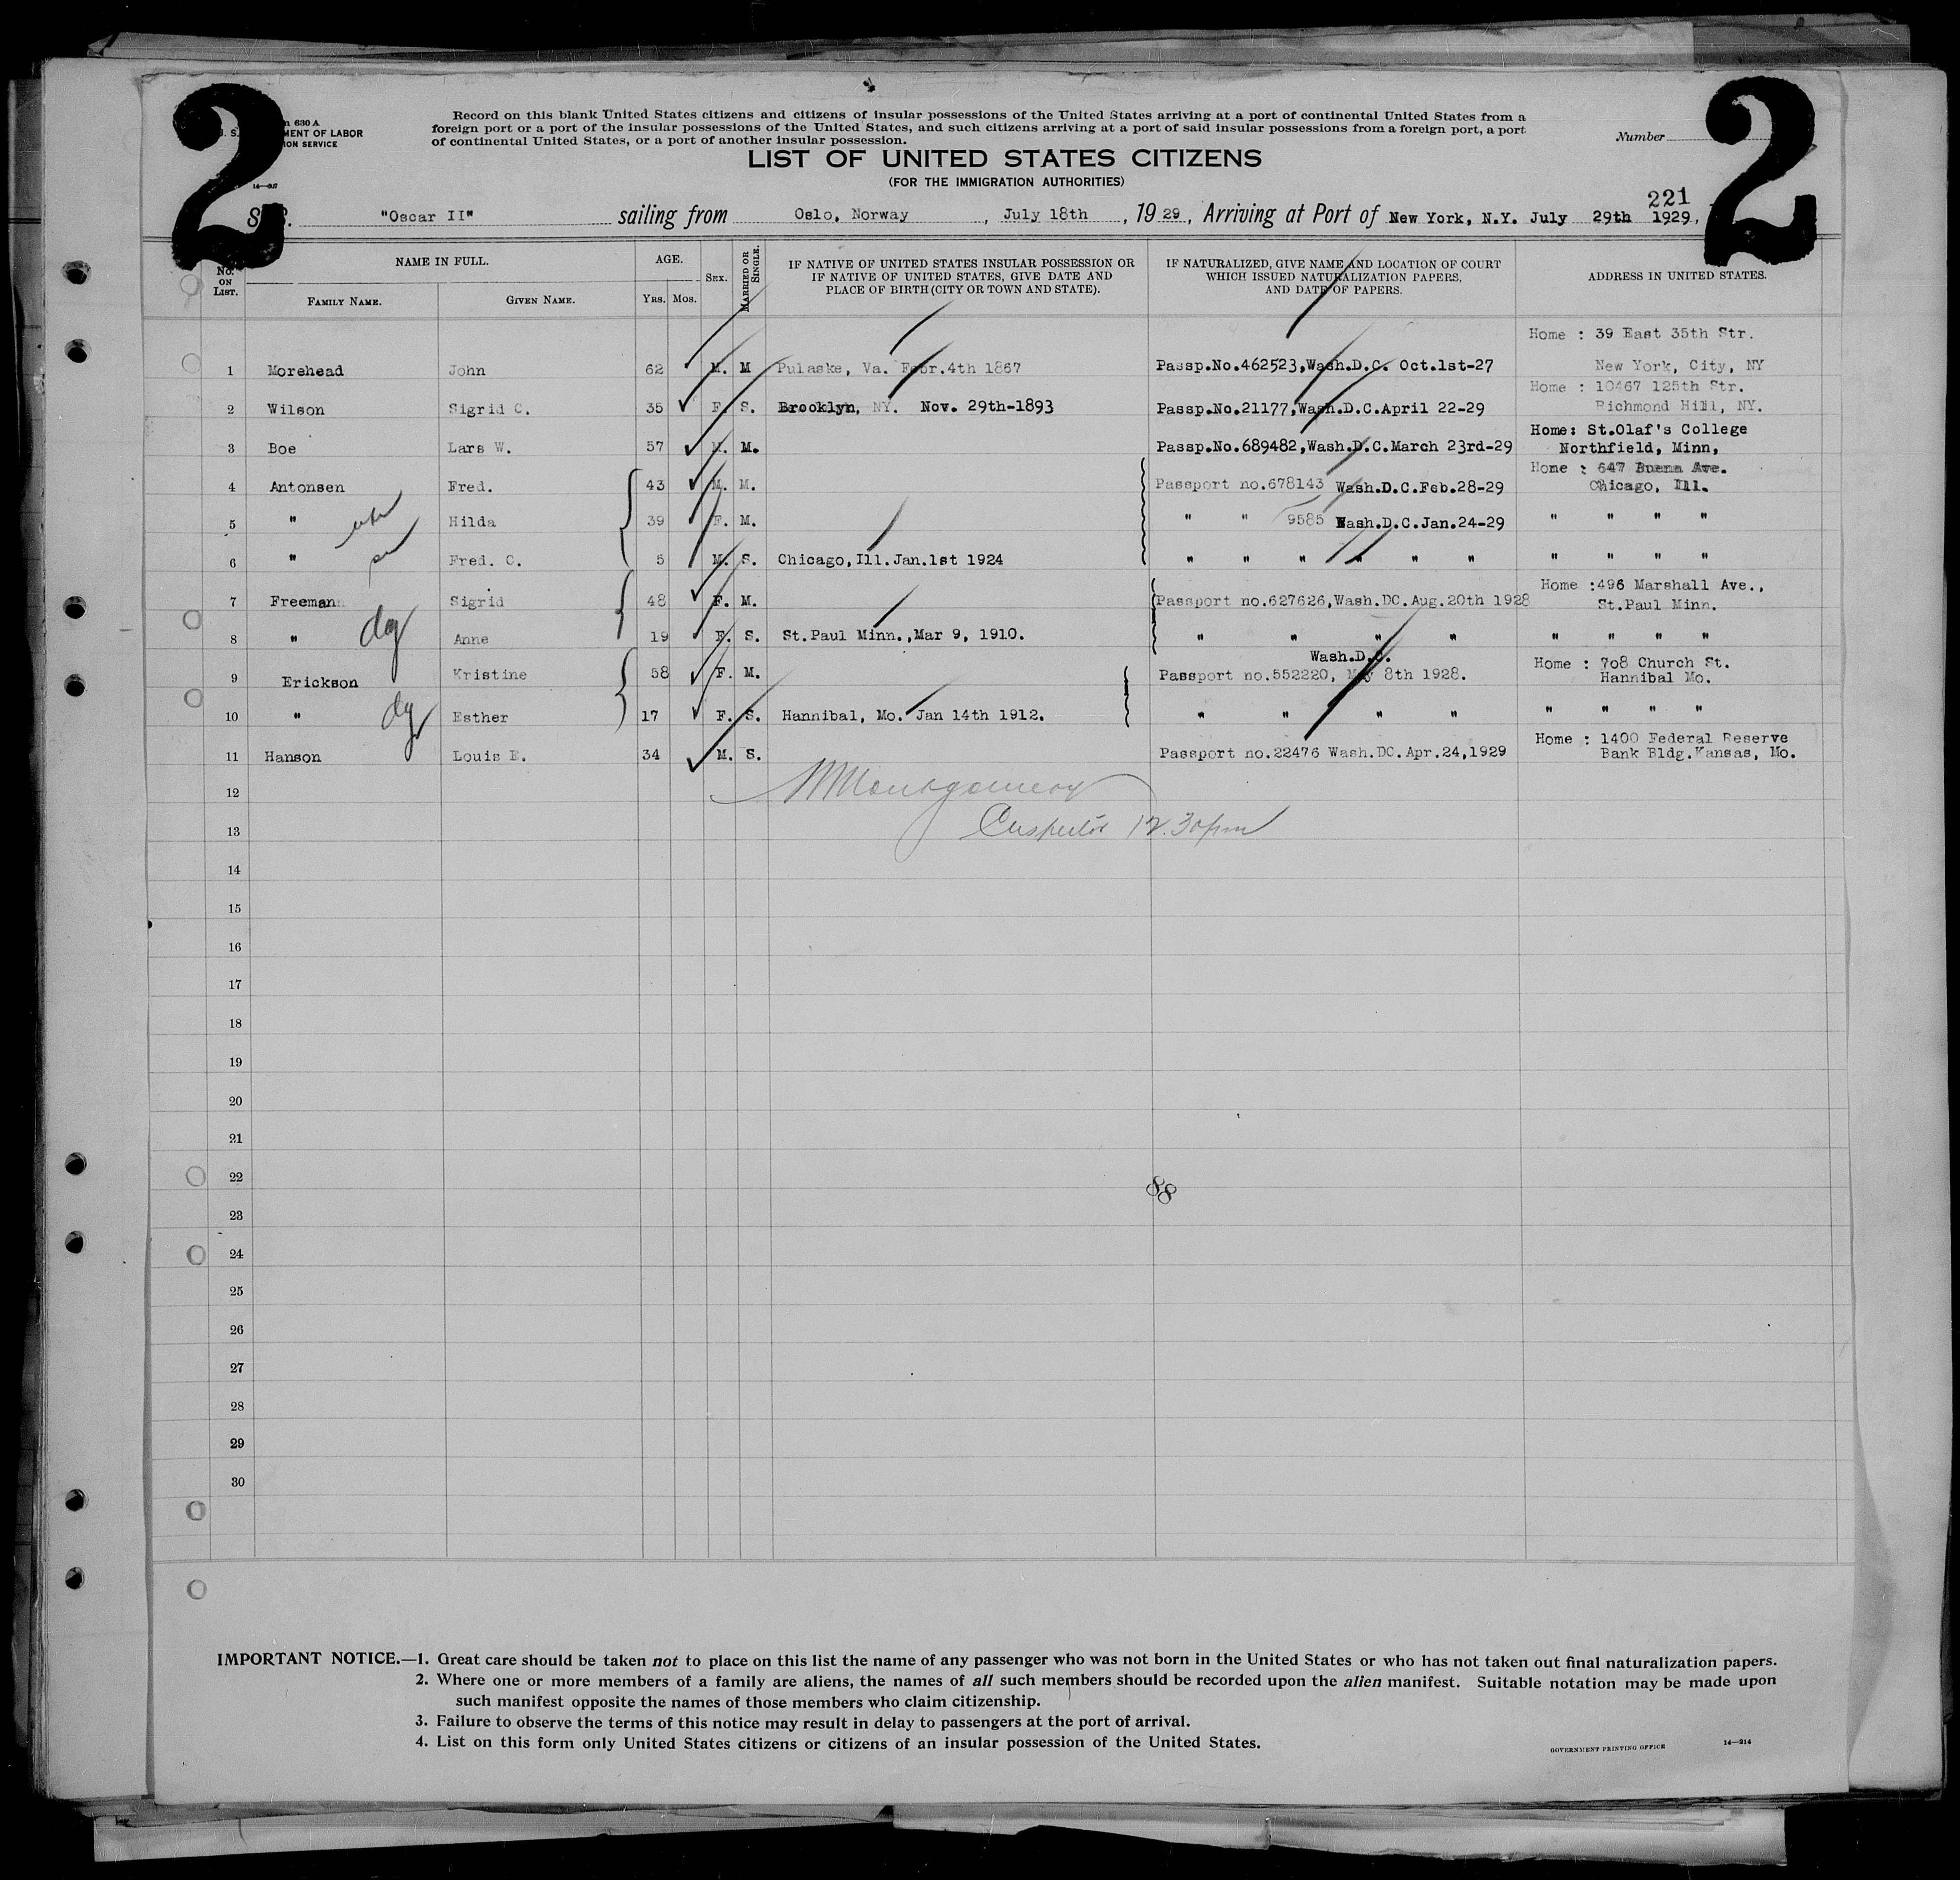 2
2
630 A
MENT OF LABOR
ION SERVICE
14—
Record on this blank United States citizens and citizens of insular possessions of the United States arriving at a port of continental United States from a
foreign port or a port of the insular possessions of the United States, and such citizens arriving at a port of said insular possessions from a foreign port, a port
of continental United States, or a port of another insular possession.
Number
LIST OF UNITED STATES CITIZENS
(FOR THE IMMIGRATION AUTHORITIES)
221
S. S. "Oscar II" sailing from Oslo, Norway, July 18th, 1929, Arriving at Port of New York, N.Y. July 29th 1929,
No. ON LIST. NAME IN FULL. FAMILY NAME. GIVEN NAME. AGE. YRS. MOS. SEX. MARRIED OR SINGLE. IF NATIVE OF UNITED STATES INSULAR POSSESSION OR IF NATIVE OF UNITED STATES, GIVE DATE AND PLACE OF BIRTH (CITY OR TOWN AND STATE). IF NATURALIZED, GIVE NAME AND LOCATION OF COURT WHICH ISSUED NATURALIZATION PAPERS, AND DATE OF PAPERS. ADDRESS IN UNITED STATES.
Home : 39 East 35th Str.
1 Morehead John 62 M. M Pulaske, Va. Febr.4th 1867 Passp.No.462523,Wash.D.C. Oct.1st-27 New York, City, NY
Home : 10467 125th Str.
2 Wilson Sigrid C. 35 F. S. Brooklyn, NY. Nov. 29th-1893 Passp.No.21177,Wash.D.C.April 22-29 Richmond Hill, NY.
Home: St.Olaf's College
3 Boe Lars W. 57 M. M. Passp.No.689482,Wash.D.C.March 23rd-29 Northfield, Minn,
Home : 647 Buena Ave.
4 Antonsen Fred. 43 M. M. Passport no.678143 Wash.D.C.Feb.28-29 Chicago, Ill.
5 " Hilda 39 F. M. " " 9585 Wash.D.C.Jan.24-29 " " " "
6 " Fred. C. 5 M. S. Chicago,Ill.Jan.1st 1924 " " " " " " " " " "
Home :496 Marshall Ave.,
7 Freeman Sigrid 48 F. M. Passport no.627626,Wash.DC.Aug.20th 1928 St.Paul Minn.
8 " dg Anne 19 F. S. St.Paul Minn.,Mar 9, 1910. " " " " " " " "
Wash.D.C. Home : 708 Church St.
9 Erickson Kristine 58 F. M. Passport no.552220, May 8th 1928. Hannibal Mo.
10 " dg Esther 17 F. S. Hannibal, Mo. Jan 14th 1912. " " " " " " " "
Home : 1400 Federal Reserve
11 Hanson Louis E. 34 M. S. Passport no.22476 Wash.DC.Apr.24,1929 Bank Bldg.Kansas, Mo.
12 Montgomery
13 Inspector 12.30pm
14
15
16
17
18
19
20
21
22
88
23
24
25
26
27
28
29
30
IMPORTANT NOTICE.—1. Great care should be taken not to place on this list the name of any passenger who was not born in the United States or who has not taken out final naturalization papers.
2. Where one or more members of a family are aliens, the names of all such members should be recorded upon the alien manifest. Suitable notation may be made upon
such manifest opposite the names of those members who claim citizenship.
3. Failure to observe the terms of this notice may result in delay to passengers at the port of arrival.
4. List on this form only United States citizens or citizens of an insular possession of the United States.
GOVERNMENT PRINTING OFFICE 14—914